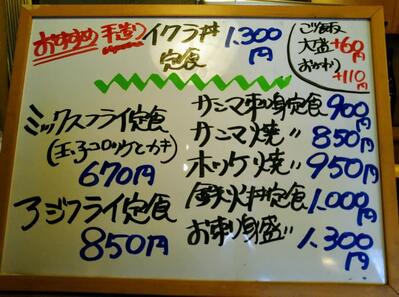 おすすめ 手造り イクラ丼定食 1.300円
ご飯
大盛+60円
おかわり+110円
ミックスフライ定食
(玉子コロッケとカキ)
670円
アジフライ定食
850円
サンマ刺身定食 900円
サンマ焼〃 850円
ホッケ焼〃 950円
鉄火丼定食 1.000円
お刺身盛〃 1.300円